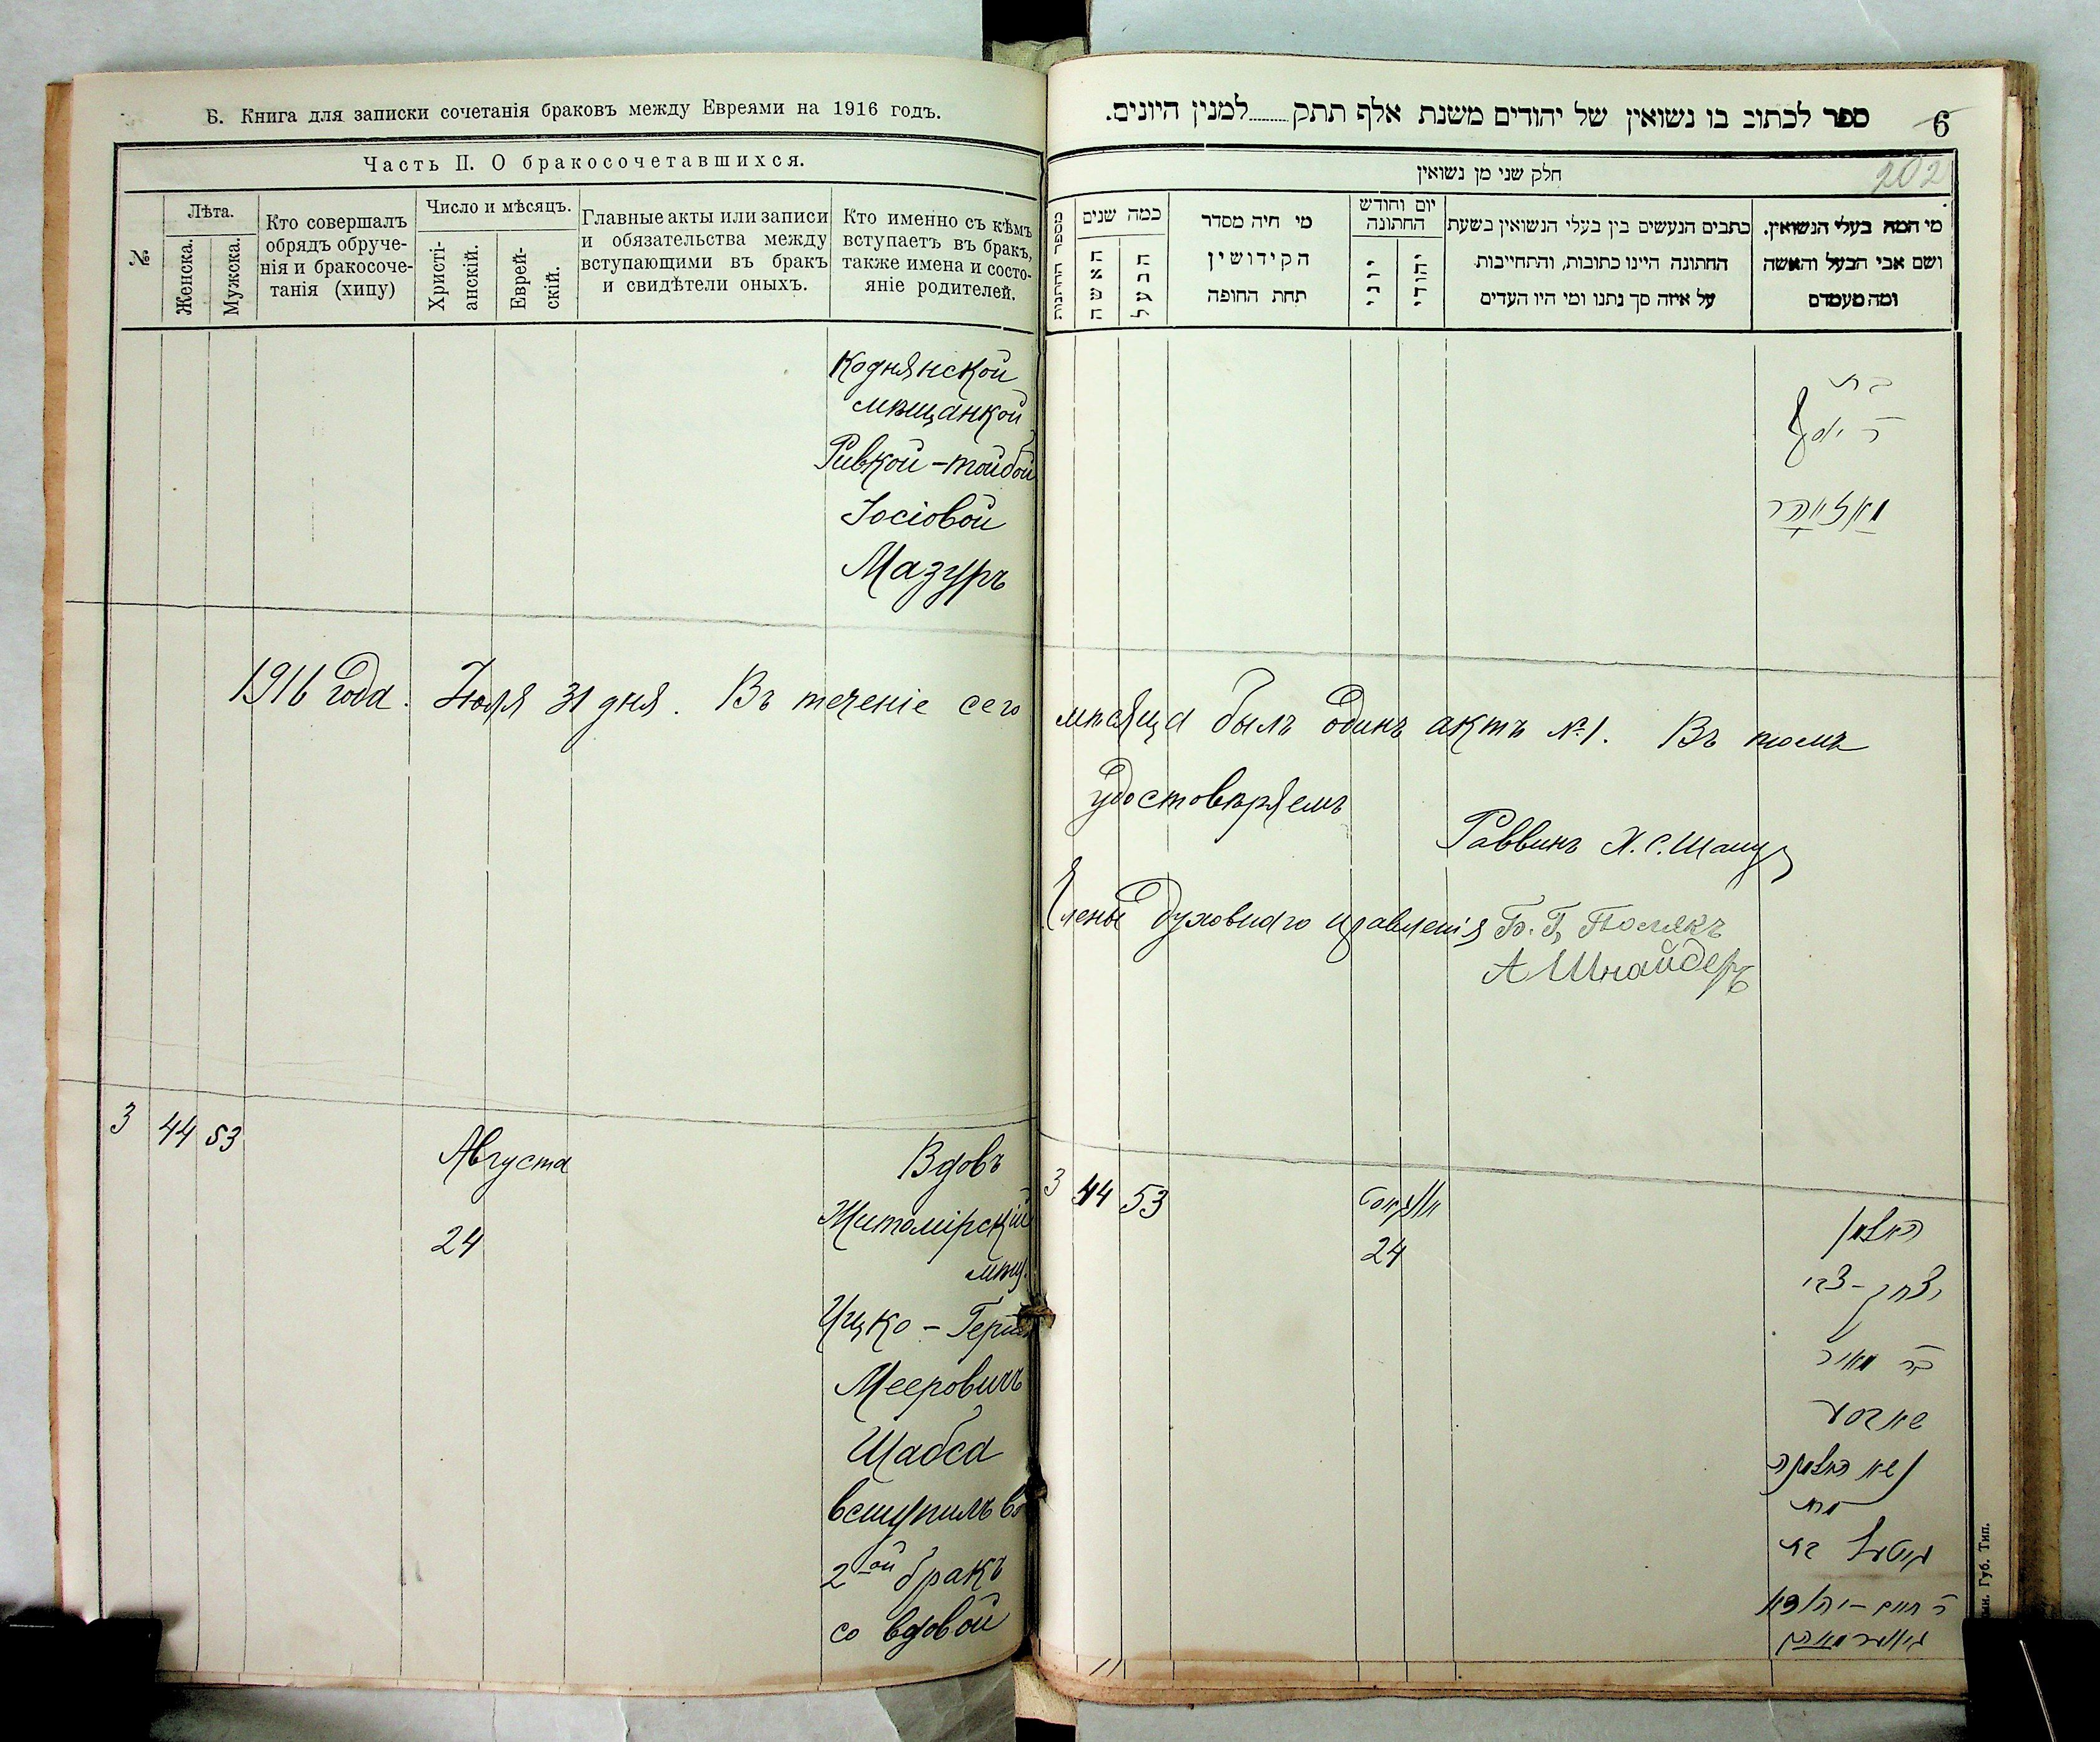 Б. Книга для записки сочетанія браковъ между Евреями на 1916 годъ.
Часть II. О бракосочетавшихся.
№
Лѣта.
Женска.
Мужска.
Кто совершалъ
обрядъ обруче-
нія и бракосоче-
танія (хипу)
Число и мѣсяцъ.
Христі-
анскій.
Еврей-
скій.
Главные акты или записи
и обязательства между
вступающими въ бракъ
и свидѣтели оныхъ.
Кто именно съ кѣмъ
вступаетъ въ бракъ,
также имена и состо-
яніе родителей.
Коднянской
мѣщанкой
Ривкой-Тойбой
Іосіовой
Мазуръ
1916 года. Іюля 31 дня. Въ теченіе сего
3 44 53
Августа
24
Вдовъ
Житомірскій
мѣщ.
Ицко-
Мееровичъ
Шабса
вступилъ во
2ой бракъ
со вдовой
ספר לכתוב בו נשואין של יהודים משנת אלף תתק........למנין היונים.
6
202
חלק שני מן נשואין
מספר החתנות
כמה שנים
האשה
הבעל
מי חיה מסדר
הקידושין
תחת החופה
יום וחודש
החתונה
יוני
יהודי
כתבים הנעשים בין בעלי הנשואין בשעת
החתונה היינו כתובות, והתחייבות
על איזה סך נתנו ומי היו העדים
מי המה בעלי הנשואין.
ושם אבי הבעל והאשה
ומה מעמדם
בת
ר יוסף
мѣсяца былъ одинъ актъ №1. Въ томъ
удостовѣряемъ
Раввинъ Х. С.
Члены Духовнаго правленія Б. Г. Полякъ
А Шнайдеръ
3 44 53
אווגוסט
24
האלמן
יצחק-צבי
בר מאיר
נשא האלמנה
מרת
גיטעל בת
Губ. Тип.